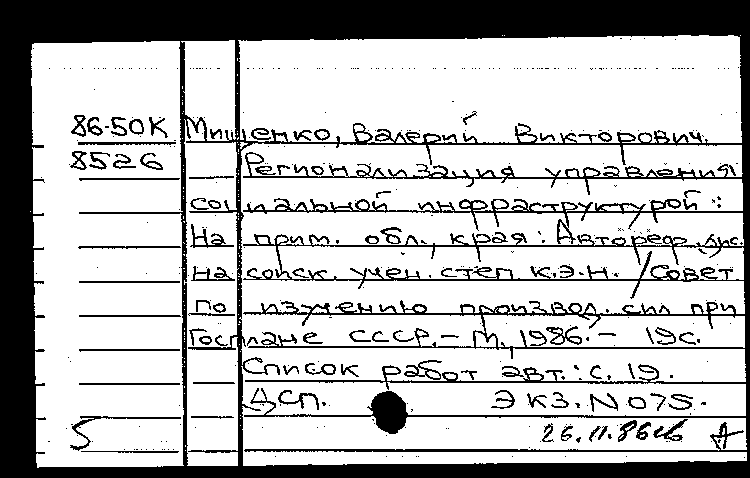 86-50К Мищенко, Валерий Викторович.
8526 Регионализация управления
социальной инфраструктурой:
На прим. обл., края: Автореф. дис.
на соиск. учен. степ. к.э.н. / Совет
по изучению производ. сил при
Госплане СССР. - М., 1986. - 19с.
Список работ авт.: с. 19.
ДСП. ЭКЗ. N 075.
5 26.11.86